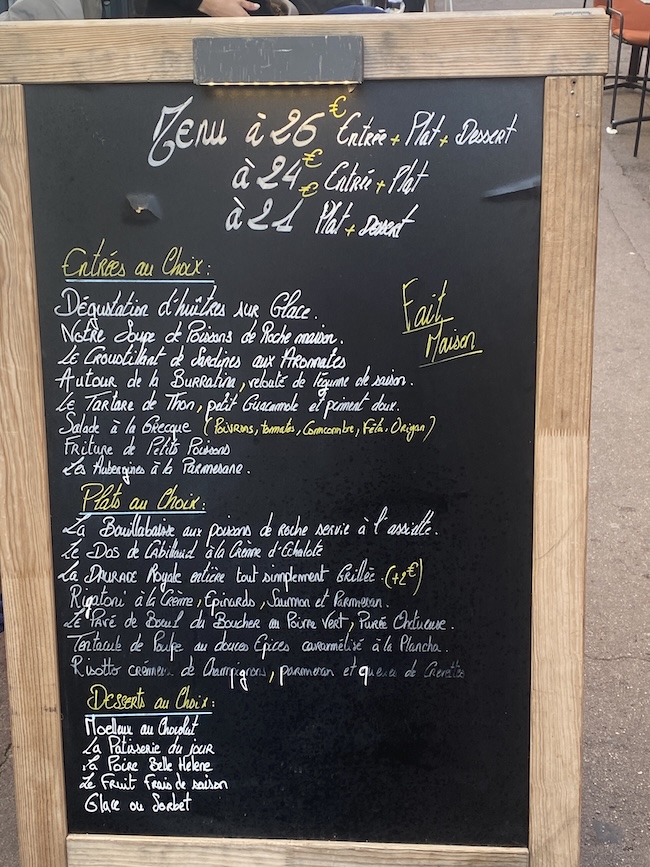 Menu à 26€ Entrée + Plat + Dessert
à 24€ Entrée + Plat
à 21€ Plat + Dessert
Entrées au Choix :
Dégustation d'huîtres sur Glace.
Notre Soupe de Poissons de Roche maison.
Le Croustillant de Sardines aux Aromates
Autour de la Burratina, velouté de légume de saison.
Le Tartare de Thon, petit Guacamole et piment doux.
Salade à la Grecque (Poivrons, tomates, Concombre, Féta, Origan)
Friture de Petits Poissons
Les Aubergines à la Parmesane.
Fait
Maison
Plats au Choix :
La Bouillabaisse aux poissons de Roche servie à l'assiette.
Le Dos de Cabillaud à la Crème d'Echalote
La Daurade Royale entière tout simplement Grillée. (+2€)
Rigatoni à la Crème, Epinards, Saumon et Parmesan.
Le Pavé de Boeuf du Boucher au Poivre Vert, Purée Onctueuse.
Tentacule de Poulpe au douces Epices caramélisé à la Plancha.
Risotto crémeux de Champignons, parmesan et queues de Crevettes
Desserts au Choix :
Moelleux au Chocolat
La Patisserie du jour
La Poire Belle Hélène
Le Fruit Frais de saison
Glace ou Sorbet